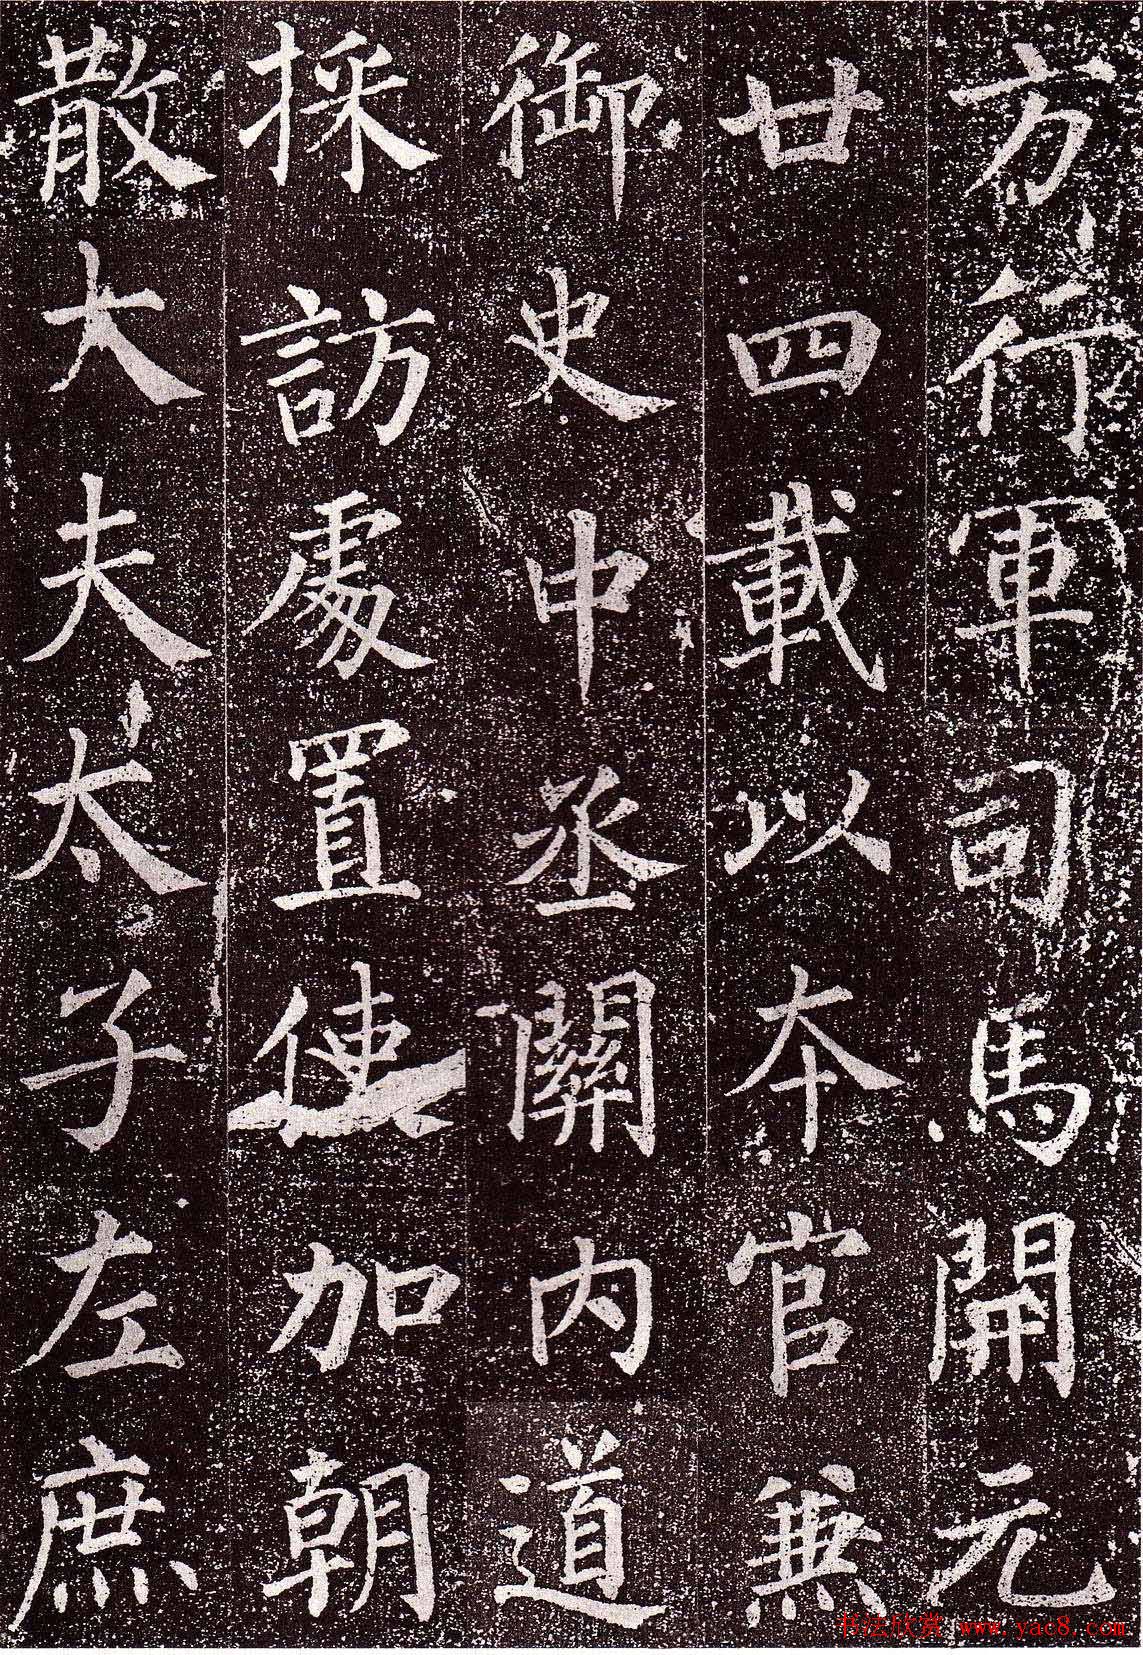 方行軍司馬開元
廿四載以本官兼
御史中丞關内道
採訪處置使加朝
散大夫太子左庶
书法欣赏 www.yac8.com